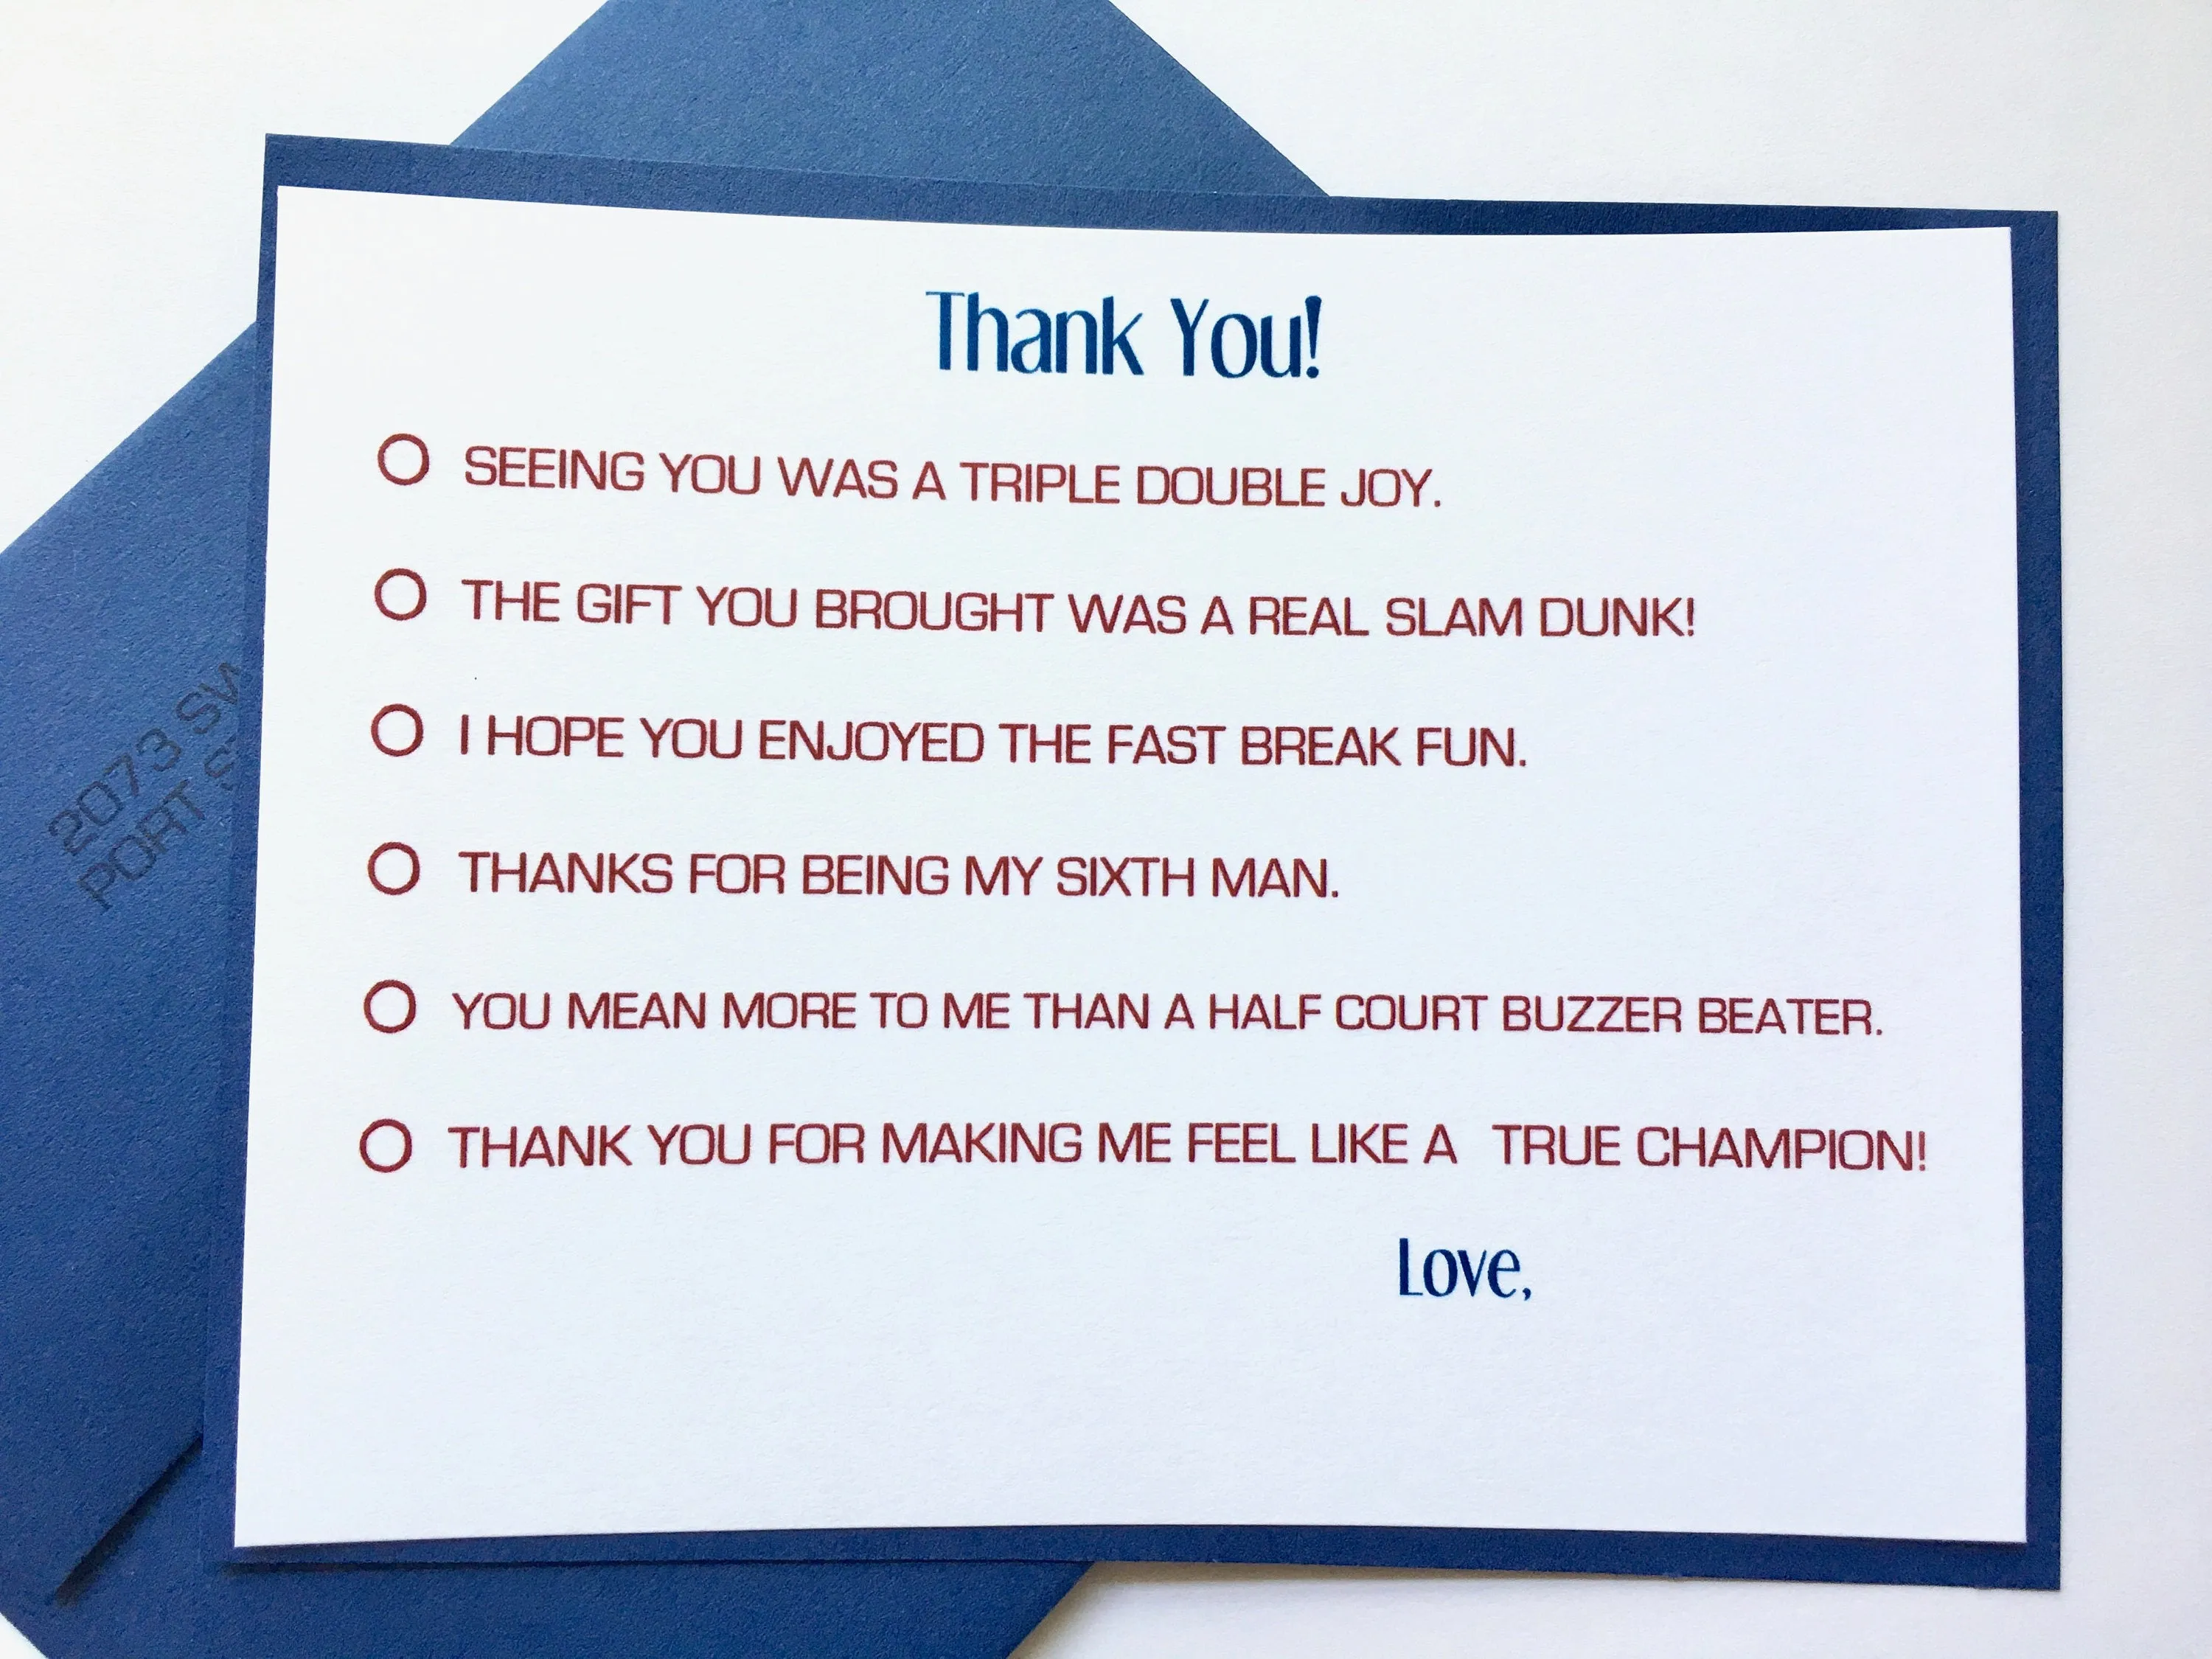 Thank You!
SEEING YOU WAS A TRIPLE DOUBLE JOY.
THE GIFT YOU BROUGHT WAS A REAL SLAM DUNK!
I HOPE YOU ENJOYED THE FAST BREAK FUN.
THANKS FOR BEING MY SIXTH MAN.
YOU MEAN MORE TO ME THAN A HALF COURT BUZZER BEATER.
THANK YOU FOR MAKING ME FEEL LIKE A TRUE CHAMPION!
Love,
2073 SW
PORT